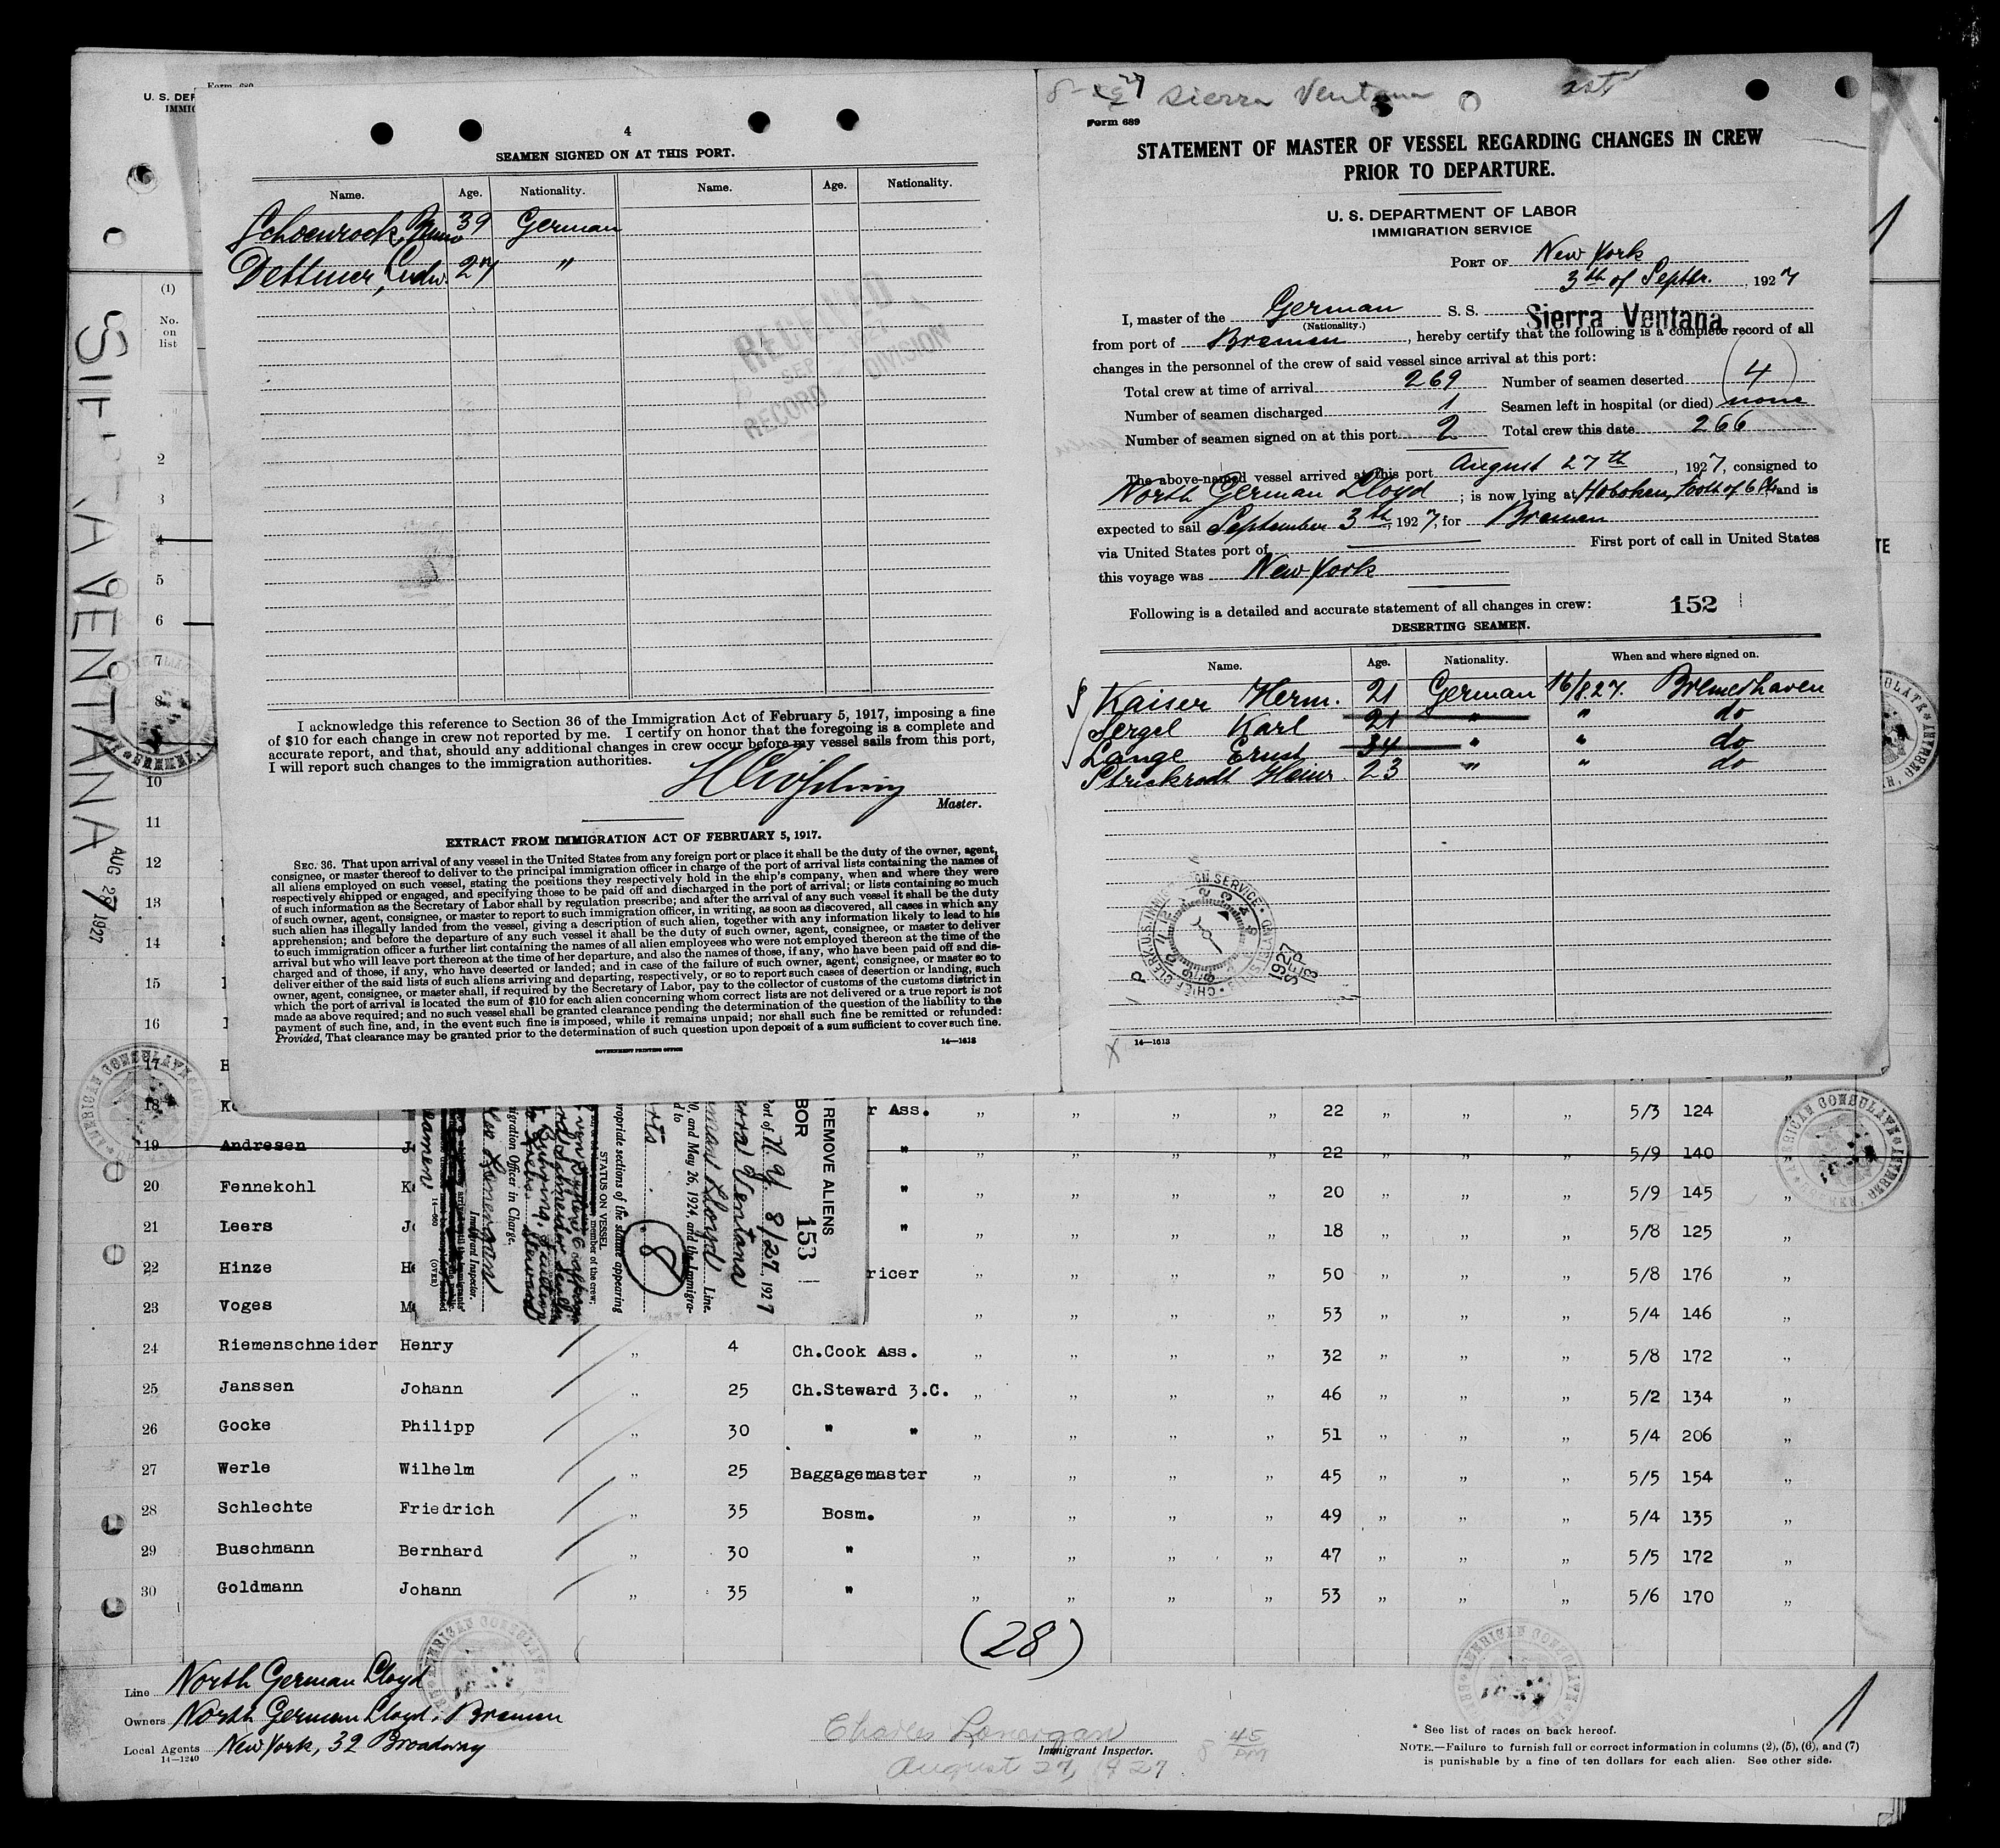 Form 689
U. S. DEP
IMMIG
(1)
No.
on
list
SIERRA VENTANA
AUG 27 1927
4
SEAMEN SIGNED ON AT THIS PORT.
Name. Age. Nationality. Name. Age. Nationality.
Schoenrock, Bruno 39 German
Dettmer, Ludw. 27 "
RECEIVED
SEP 1927
RECORD DIVISION
I acknowledge this reference to Section 36 of the Immigration Act of February 5, 1917, imposing a fine
of $10 for each change in crew not reported by me. I certify on honor that the foregoing is a complete and
accurate report, and that, should any additional changes in crew occur before my vessel sails from this port,
I will report such changes to the immigration authorities.
Master.
EXTRACT FROM IMMIGRATION ACT OF FEBRUARY 5, 1917.
SEC. 36. That upon arrival of any vessel in the United States from any foreign port or place it shall be the duty of the owner, agent,
consignee, or master thereof to deliver to the principal immigration officer in charge of the port of arrival lists containing the names of
all aliens employed on such vessel, stating the positions they respectively hold in the ship's company, when and where they were
respectively shipped or engaged, and specifying those to be paid off and discharged in the port of arrival; or lists containing so much
of such information as the Secretary of Labor shall by regulation prescribe; and after the arrival of any such vessel it shall be the duty
of such owner, agent, consignee, or master to report to such immigration officer, in writing, as soon as discovered, all cases in which any
such alien has illegally landed from the vessel, giving a description of such alien, together with any information likely to lead to his
apprehension; and before the departure of any such vessel it shall be the duty of such owner, agent, consignee, or master to deliver
to such immigration officer a further list containing the names of all alien employees who were not employed thereon at the time of the
arrival but who will leave port thereon at the time of her departure, and also the names of those, if any, who have been paid off and dis-
charged and of those, if any, who have deserted or landed; and in case of the failure of such owner, agent, consignee, or master so to
deliver either of the said lists of such aliens arriving and departing, respectively, or so to report such cases of desertion or landing, such
owner, agent, consignee, or master shall, if required by the Secretary of Labor, pay to the collector of customs of the customs district in
which the port of arrival is located the sum of $10 for each alien concerning whom correct lists are not delivered or a true report is not
made as above required; and no such vessel shall be granted clearance pending the determination of the question of the liability to the
payment of such fine, and, in the event such fine is imposed, while it remains unpaid; nor shall such fine be remitted or refunded:
Provided, That clearance may be granted prior to the determination of such question upon deposit of a sum sufficient to cover such fine.
GOVERNMENT PRINTING OFFICE
14—1613
Sierra Ventana
Form 689
STATEMENT OF MASTER OF VESSEL REGARDING CHANGES IN CREW
PRIOR TO DEPARTURE.
U. S. DEPARTMENT OF LABOR
IMMIGRATION SERVICE
PORT OF New York
3th of Septbr. , 1927
I, master of the German S. S. Sierra Ventana
(Nationality.)
from port of Bremen, hereby certify that the following is a complete record of all
changes in the personnel of the crew of said vessel since arrival at this port:
Total crew at time of arrival 269 Number of seamen deserted (4)
Number of seamen discharged 1 Seamen left in hospital (or died) none
Number of seamen signed on at this port 2 Total crew this date 266
The above-named vessel arrived at this port August 27th, 1927, consigned to
North German Lloyd; is now lying at Hoboken, Foot of 6 St, and is
expected to sail September 3th, 1927, for Bremen
via United States port of First port of call in United States
this voyage was New York
Following is a detailed and accurate statement of all changes in crew: 152
DESERTING SEAMEN.
Name. Age. Nationality. When and where signed on.
Kaiser Herm. 21 German 16/8.27. Bremerhaven
Sergel Karl 21 " " do
Lange Ernst 34 " " do
Strickrodt Heinr. 23 " " do
CHIEF CLERK U.S. IMMIGRATION SERVICE
1927 SEP 13
14—1613
REMOVE ALIENS
153
N.Y. 8/27, 1927
Sierra Ventana
German Lloyd Line.
0, and May 26, 1924, and the Immigra-
8
ropriate sections of the statute appearing
STATUS ON VESSEL
member of the crew;
gration Officer in Charge.
Immigrant Inspector.
(OVER)
2
3
4
5
6
7
8
10
11
12
13
14
15
16
17
18 r Ass. „ „ „ „ 22 „ „ „ 5/3 124
19 Andresen " „ „ „ „ 22 „ „ „ 5/9 140 „
20 Fennekohl " „ „ „ „ 20 „ „ „ 5/9 145 „
21 Leers " „ „ „ „ 18 „ „ „ 5/8 125 „
22 Hinze ricer „ „ „ „ 50 „ „ „ 5/8 176 „
23 Voges „ „ „ „ 53 „ „ „ 5/4 146 „
24 Riemenschneider Henry „ 4 Ch.Cook Ass. „ „ „ „ 32 „ „ „ 5/8 172 „
25 Janssen Johann „ 25 Ch.Steward 3.C. „ „ „ „ 46 „ „ „ 5/2 134 „
26 Gocke Philipp „ 30 " " „ „ „ „ 51 „ „ „ 5/4 206 „
27 Werle Wilhelm „ 25 Baggagemaster „ „ „ „ 45 „ „ „ 5/5 154 „
28 Schlechte Friedrich „ 35 Bosm. „ „ „ „ 49 „ „ „ 5/4 135 „
29 Buschmann Bernhard „ 30 " „ „ „ „ 47 „ „ „ 5/5 172 „
30 Goldmann Johann „ 35 " „ „ „ „ 53 „ „ „ 5/6 170 „
(28)
AMERICAN CONSULATE
Line North German Lloyd
Owners North German Lloyd, Bremen
Local Agents New York, 32 Broadway
14—1240
Charles Lonergan
Immigrant Inspector.
August 27, 1927
8 45 PM
* See list of races on back hereof.
NOTE.—Failure to furnish full or correct information in columns (2), (5), (6), and (7)
is punishable by a fine of ten dollars for each alien. See other side.
1